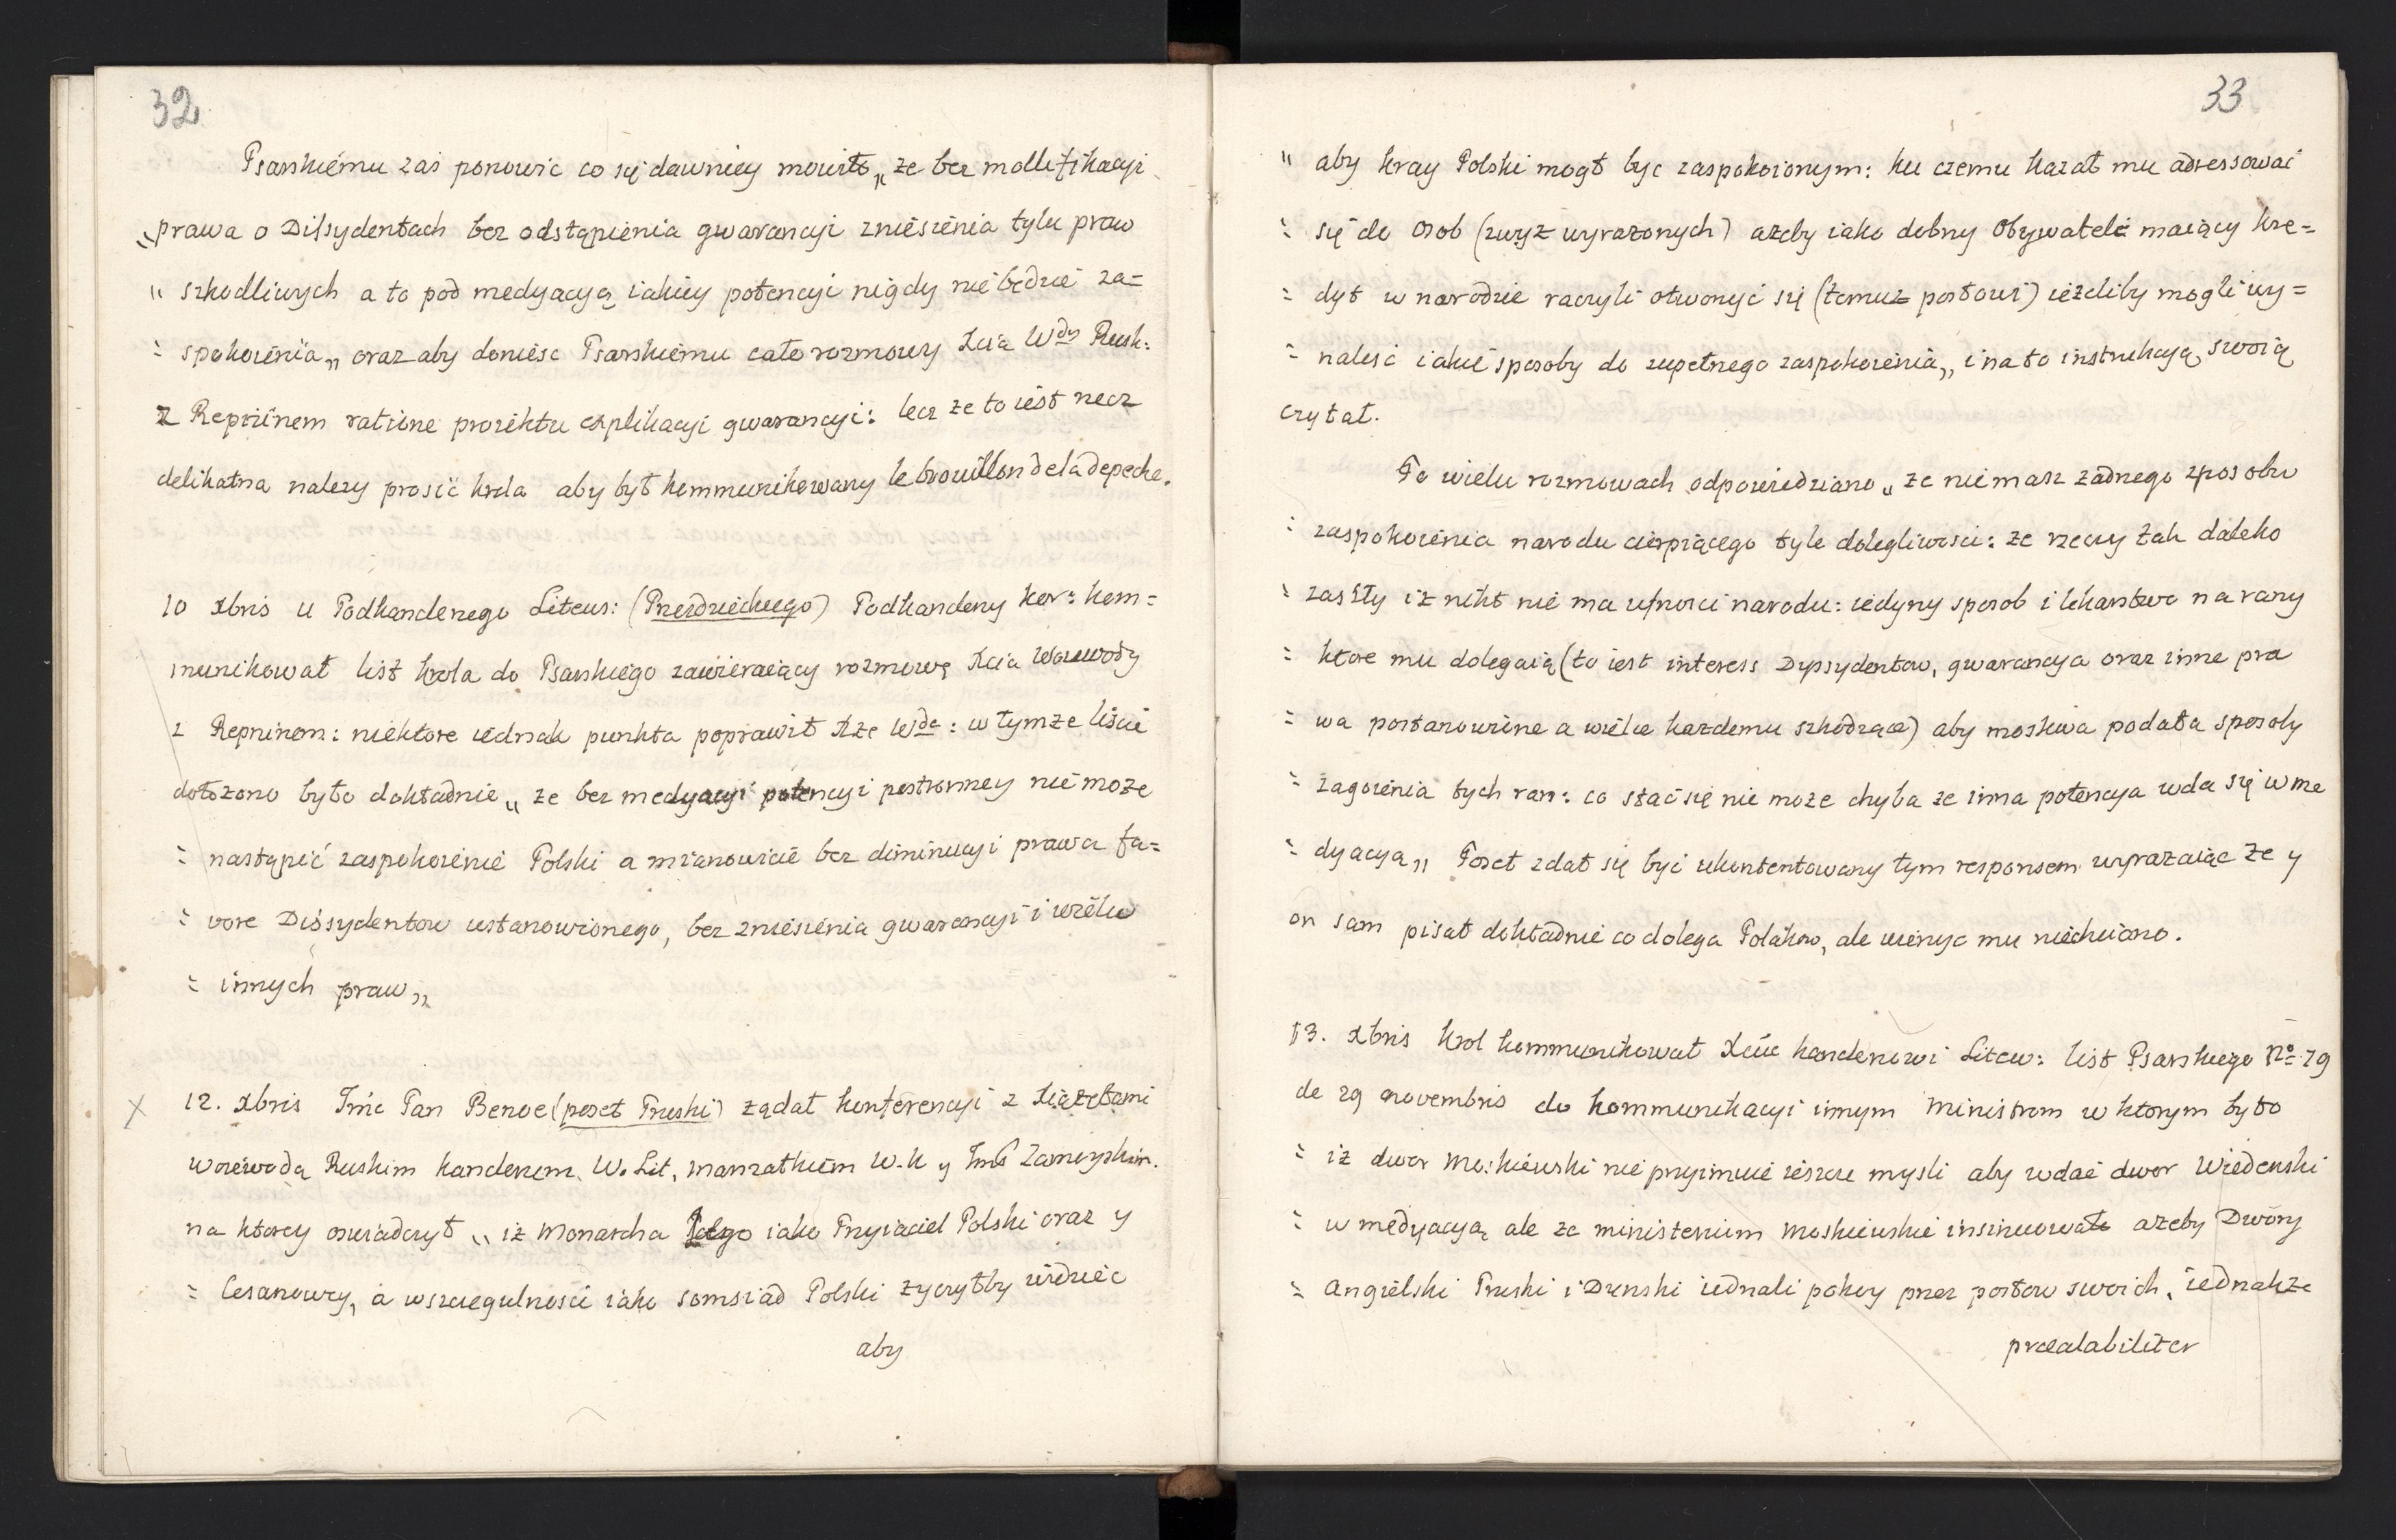 32
Psarskiemu zaś ponowic co się dawniey mowiło „ ze bez mollifikacyi
„ prawa o Dissydentach bez odstąpienia gwarancyi zniesienia tylu praw
„ szkodliwych a to pod medyacyą iakiey potencyi nigdy nie będzie za=
= spokoienia „ oraz aby doniesc Psarskiemu cało rozmowy Xcia Wdy Rusk:
z Repninem ratione proiektu explikacyi gwarancyi: lecz ze to iest rzecz
delikatna nalezy prosić krola aby był kommunikowany le brouillon de la depeche.
10 Xbris u Podkanclerzego Litews: (Przezdzieckiego) Podkanclerzy kor: kom=
munikował list krola do Psarskiego zawieraiący rozmowę Xcia Woiewody
z Repninem: niektore iednak punkta poprawił Xże Wda: w tymze liście
dołozono było dokładnie „ ze bez medyacyi potencyi postronney nie moze
= nastąpić zaspokoienie Polski a mianowicie bez diminucyi prawa fa=
= vore Dissydentow ustanowionego, bez zniesienia gwarancyi i wielu
= innych praw „
12. Xbris Jmć Pan Benoe (poseł Pruski) ządał konferencyi z Xiążętami
Woiewodą Ruskim kanclerzem W. Lit, marszałkiem W. K y Jmć Zamoyskim.
na ktorey oswiadczył „ iz Monarcha Jego iako Przyiaciel Polski oraz y
= Cesarzowey, a wszczegulnosci iako somsiad Polski zyczyłby widziec
aby
33
„ aby kray Polski mogł byc zaspokoionym: ku czemu kazał mu adressować
= się do osob (zwyz wyrazonych) azeby iako dobrzy Obywatele maiący kre=
= dyt w narodzie raczyli otworzyć się (temuz posłowi) iezeliby mogli wy=
= naleść iakie sposoby do zupełnego zaspokoienia „ i na to instrukcyą swoią
czytał.
Po wielu rozmowach odpowiedziano „ ze nie masz zadnego sposobu
= zaspokoienia narodu cierpiącego tyle dolegliwosci: ze rzeczy tak daleko
= zaszły iz nikt nie ma ufnosci narodu: iedyny sposob i lekarstwo na rany
= ktore mu dolegaią (to iest interess Dyssydentow, gwarancya oraz inne pra
= wa postanowione a wielu kazdemu szkodzące) aby moskwa podała sposoby
= zagoienia tych ran: co stać się nie moze chyba ze inna potencya wda się w me
= dyacyą „ Poseł zdał się być ukontentowany tym responsem wyrazaiąc ze y
on sam pisał dokładnie co dolega Polakow, ale wierzyc mu niechciano.
13. Xbris krol kommunikował Xciu kanclerzowi Litew: list Psarskiego No 79
de 29 novembris do kommunikacyi innym ministrom w ktorym było
= iz dwor Moskiewski nie przyimuie ieszcze mysli aby wdać dwor Wiedenski
= w medyacyą ale ze ministerium moskiewskie insinuowało azeby Dwory
= Angielski Pruski i Dunski iednali pokoy przez posłow swoich, iednakze
præalabiliter